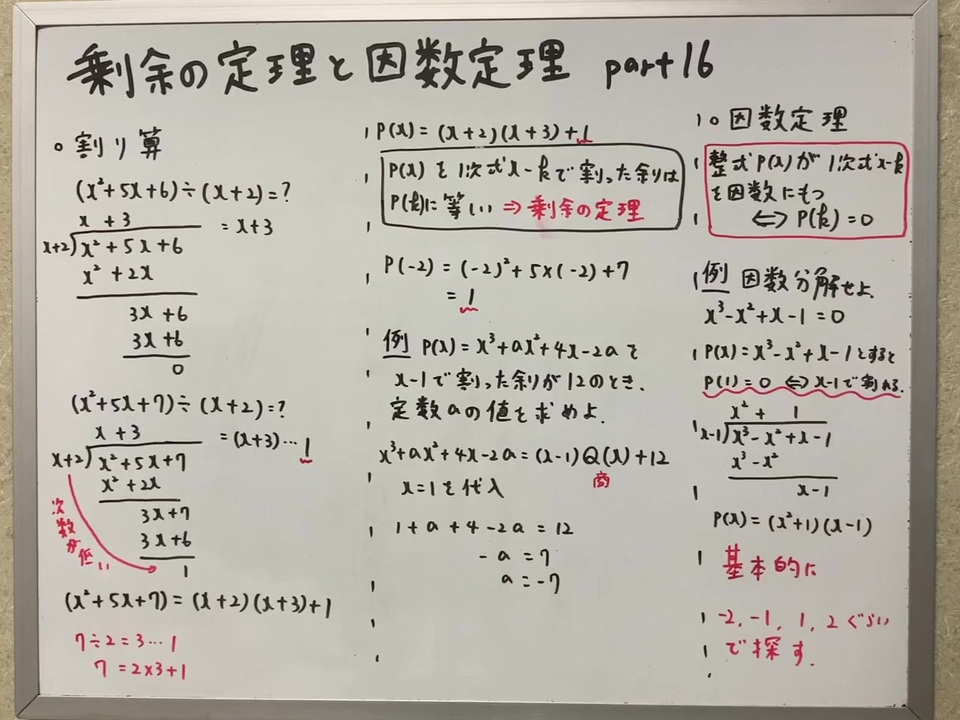 剰余の定理と因数定理 part16
○割り算
(x²+5x+6)÷(x+2)=?
x+3
x+2)x²+5x+6 =x+3
x²+2x
3x+6
3x+6
0
(x²+5x+7)÷(x+2)=?
x+3
x+2)x²+5x+7 =(x+3)…1
x²+2x
3x+7
3x+6
1
次数が低い
(x²+5x+7)=(x+2)(x+3)+1
7÷2=3…1
7=2×3+1
P(x)=(x+2)(x+3)+1
P(x)を1次式x-kで割った余りは
P(k)に等しい⇒剰余の定理
P(-2)=(-2)²+5×(-2)+7
=1
例 P(x)=x³+ax²+4x-2aを
x-1で割った余りが12のとき、
定数aの値を求めよ.
x³+ax²+4x-2a=(x-1)Q(x)+12
商
x=1を代入
1+a+4-2a=12
-a=7
a=-7
○因数定理
整式P(x)が1次式x-k
を因数にもつ
⇔P(k)=0
例 因数分解せよ.
x³-x²+x-1=0
P(x)=x³-x²+x-1とすると
P(1)=0 ⇔x-1で割れる.
x²+1
x-1)x³-x²+x-1
x³-x²
x-1
P(x)=(x²+1)(x-1)
基本的に
-2,-1,1,2ぐらい
で探す.